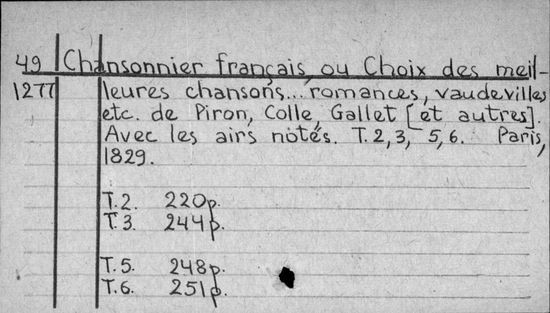 49 Chansonnier français, ou Choix des meil-
1277 leures chansons... romances, vaudevilles
etc. de Piron, Colle, Gallet [et autres].
Avec les airs notés. T. 2, 3, 5, 6. Paris,
1829.
T. 2. 220p.
T. 3. 244p.
T. 5. 248p.
T. 6. 251p.